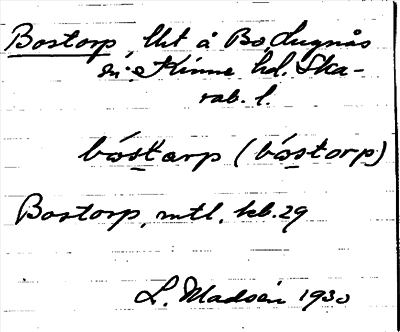 Bostorp, lht å Bo dugnås
en. Kinne hd. Ska-
rab. l.
bóstarp (bóstorp)
Bostorp, mtl. kb. 29
L. Madsén 1930